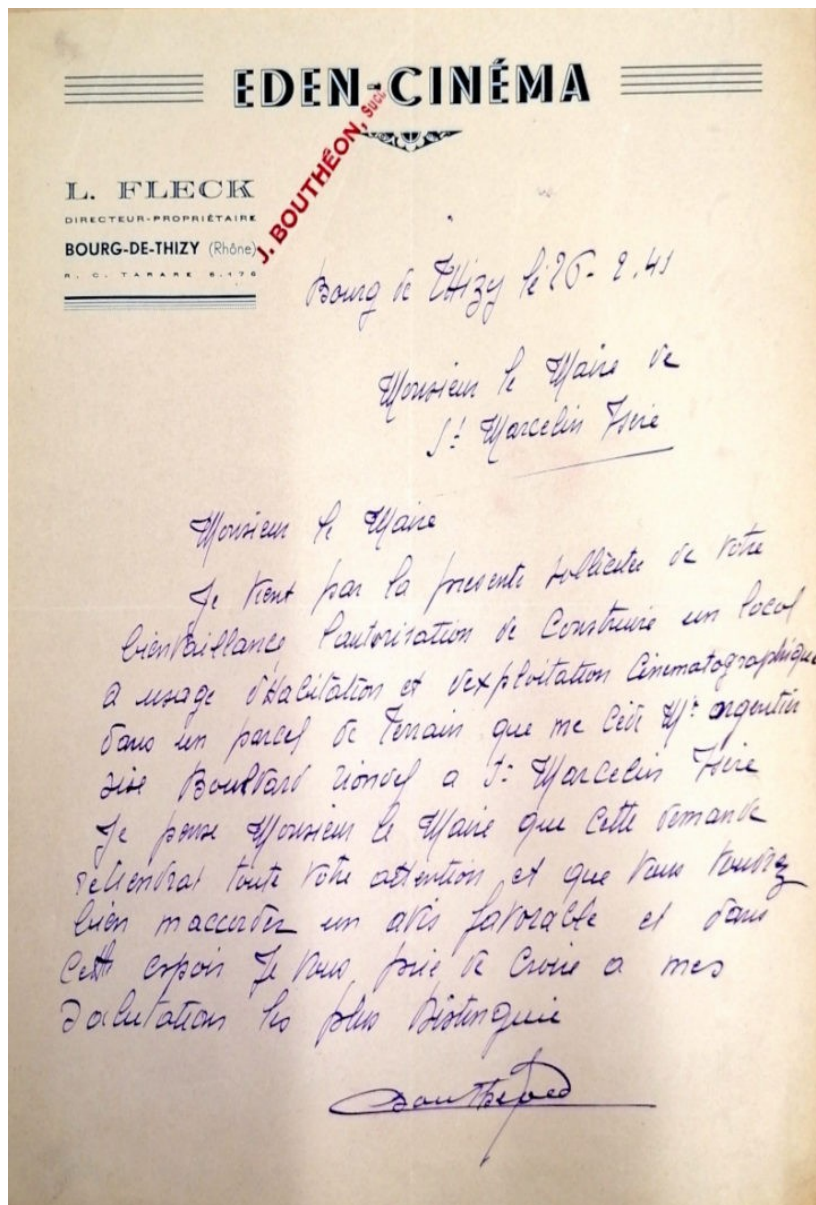 EDEN-CINÉMA
J. BOUTHÉON, Succ
L. FLECK
DIRECTEUR-PROPRIÉTAIRE
BOURG-DE-THIZY (Rhône)
R. C. TARARE 6.176
Bourg de Thizy le 26-2.41
Monsieur le Maire de
St Marcelin Isère
Monsieur le Maire
Je vient par la presente solliciter de votre
bienvaillance lautorisation de Construire un local
a usage d'Habitation et dexploitation Cinematographique
dans un parcel de Terrain que me Cède Mr argentier
sise Boulvard riondel a St Marcelin Isère
Je pense Monsieur le Maire que Cette demande
retiendrat toute votre attention et que vous voudrez
bien maccorder un avis favorable et dans
Cette espoir Je vous prie de Croire a mes
Salutations les plus Distinguie